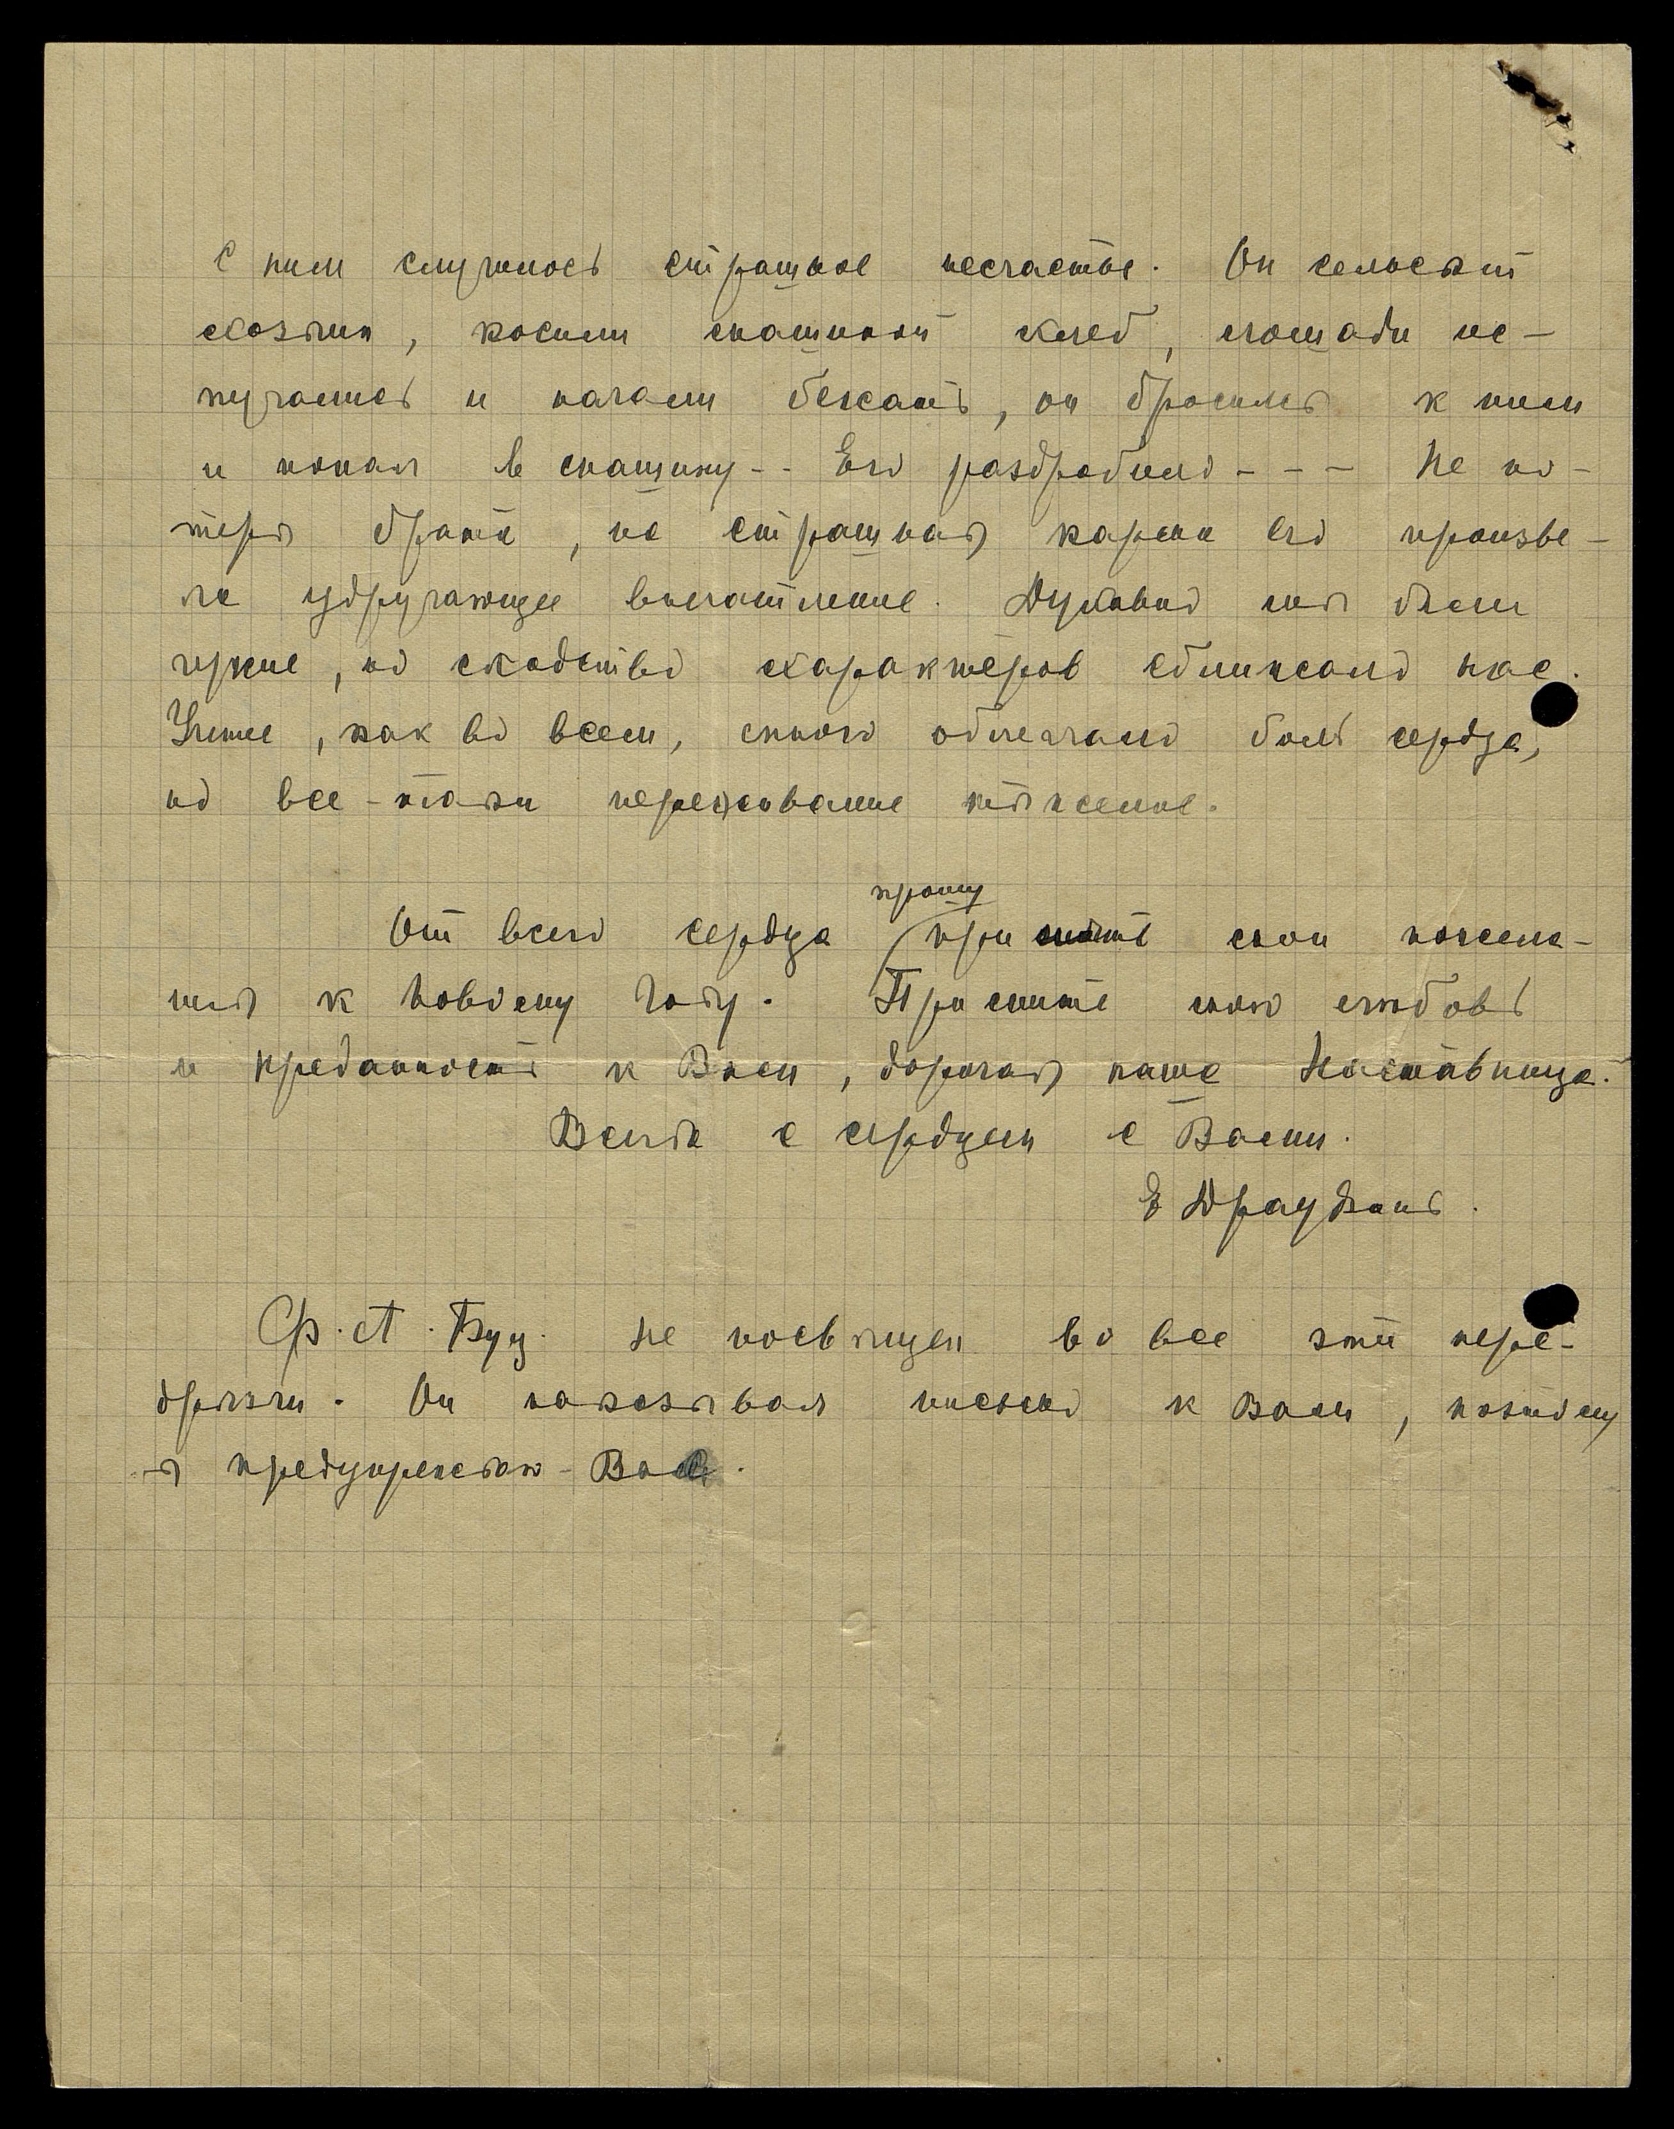 С ним случилось страшное несчастье. Он сельский
хозяин, косили машиной хлеб, лошади ис-
пугались и начали бежать, он бросился к ним
и попал в машину -- Его раздробило --- Не по-
теря брата, но страшная карма его произве-
ла удручающее впечатление. Духовно мы были
чужие, но сходство характеров сближало нас.
Учение, как во всем, много облегчало боль сердца,
но все-таки переживание тяжелое.
прошу
От всего сердца принять мои пожела-
ния к Новому Году. Примите мою любовь
и преданность к Вам, дорогая наша Наставница.
Всегда с сердцем с Вами.
Е Драудзинь.
Ф. А. Буц. не посвящен во все эти пере-
дряги. Он показывал письмо к Вам, поэтому
я предупреждаю Вас.